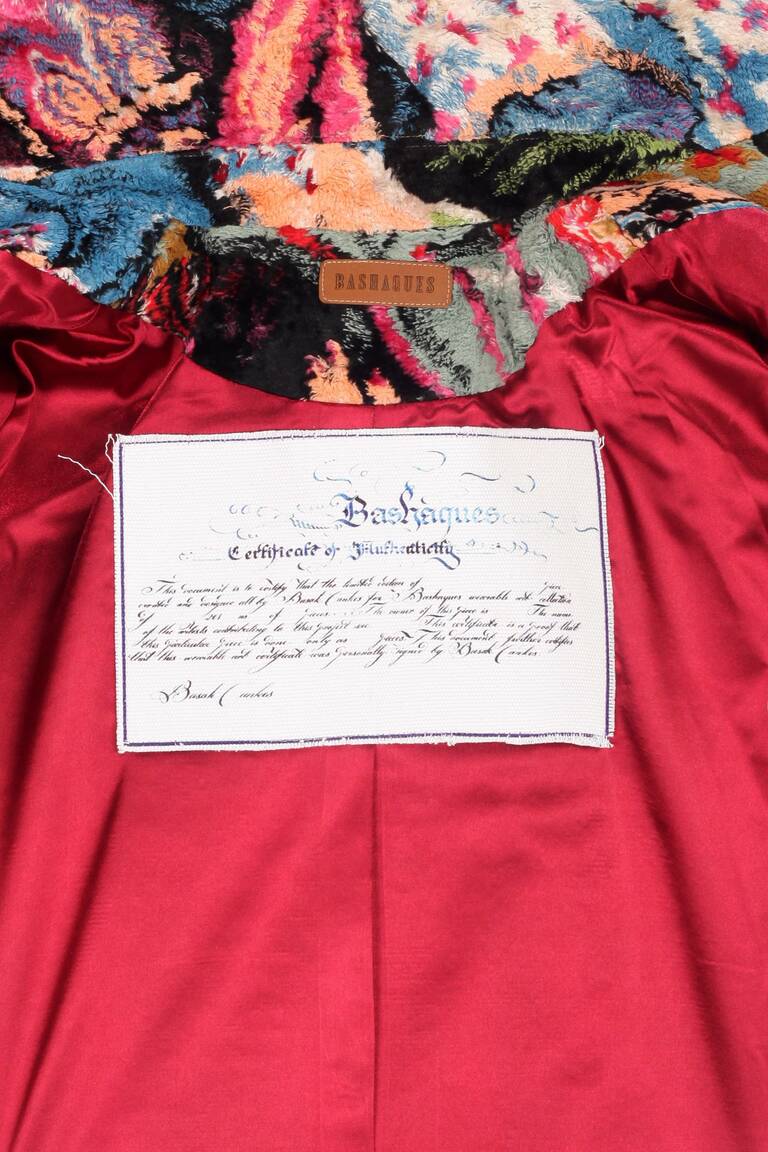 BASHAQUES
Bashaques
Certificate of Authenticity
This document is to certify that the limited edition of
created and designed all by Basak Cankes for Bashaques wearable art collection
of as of The owner of this piece is The name
of the artists contributing to this project are This certificate is a proof that
this particular piece is done only as pieces. This document further certifies
that this wearable art certificate was personally signed by Basak Cankes
Basak Cankes